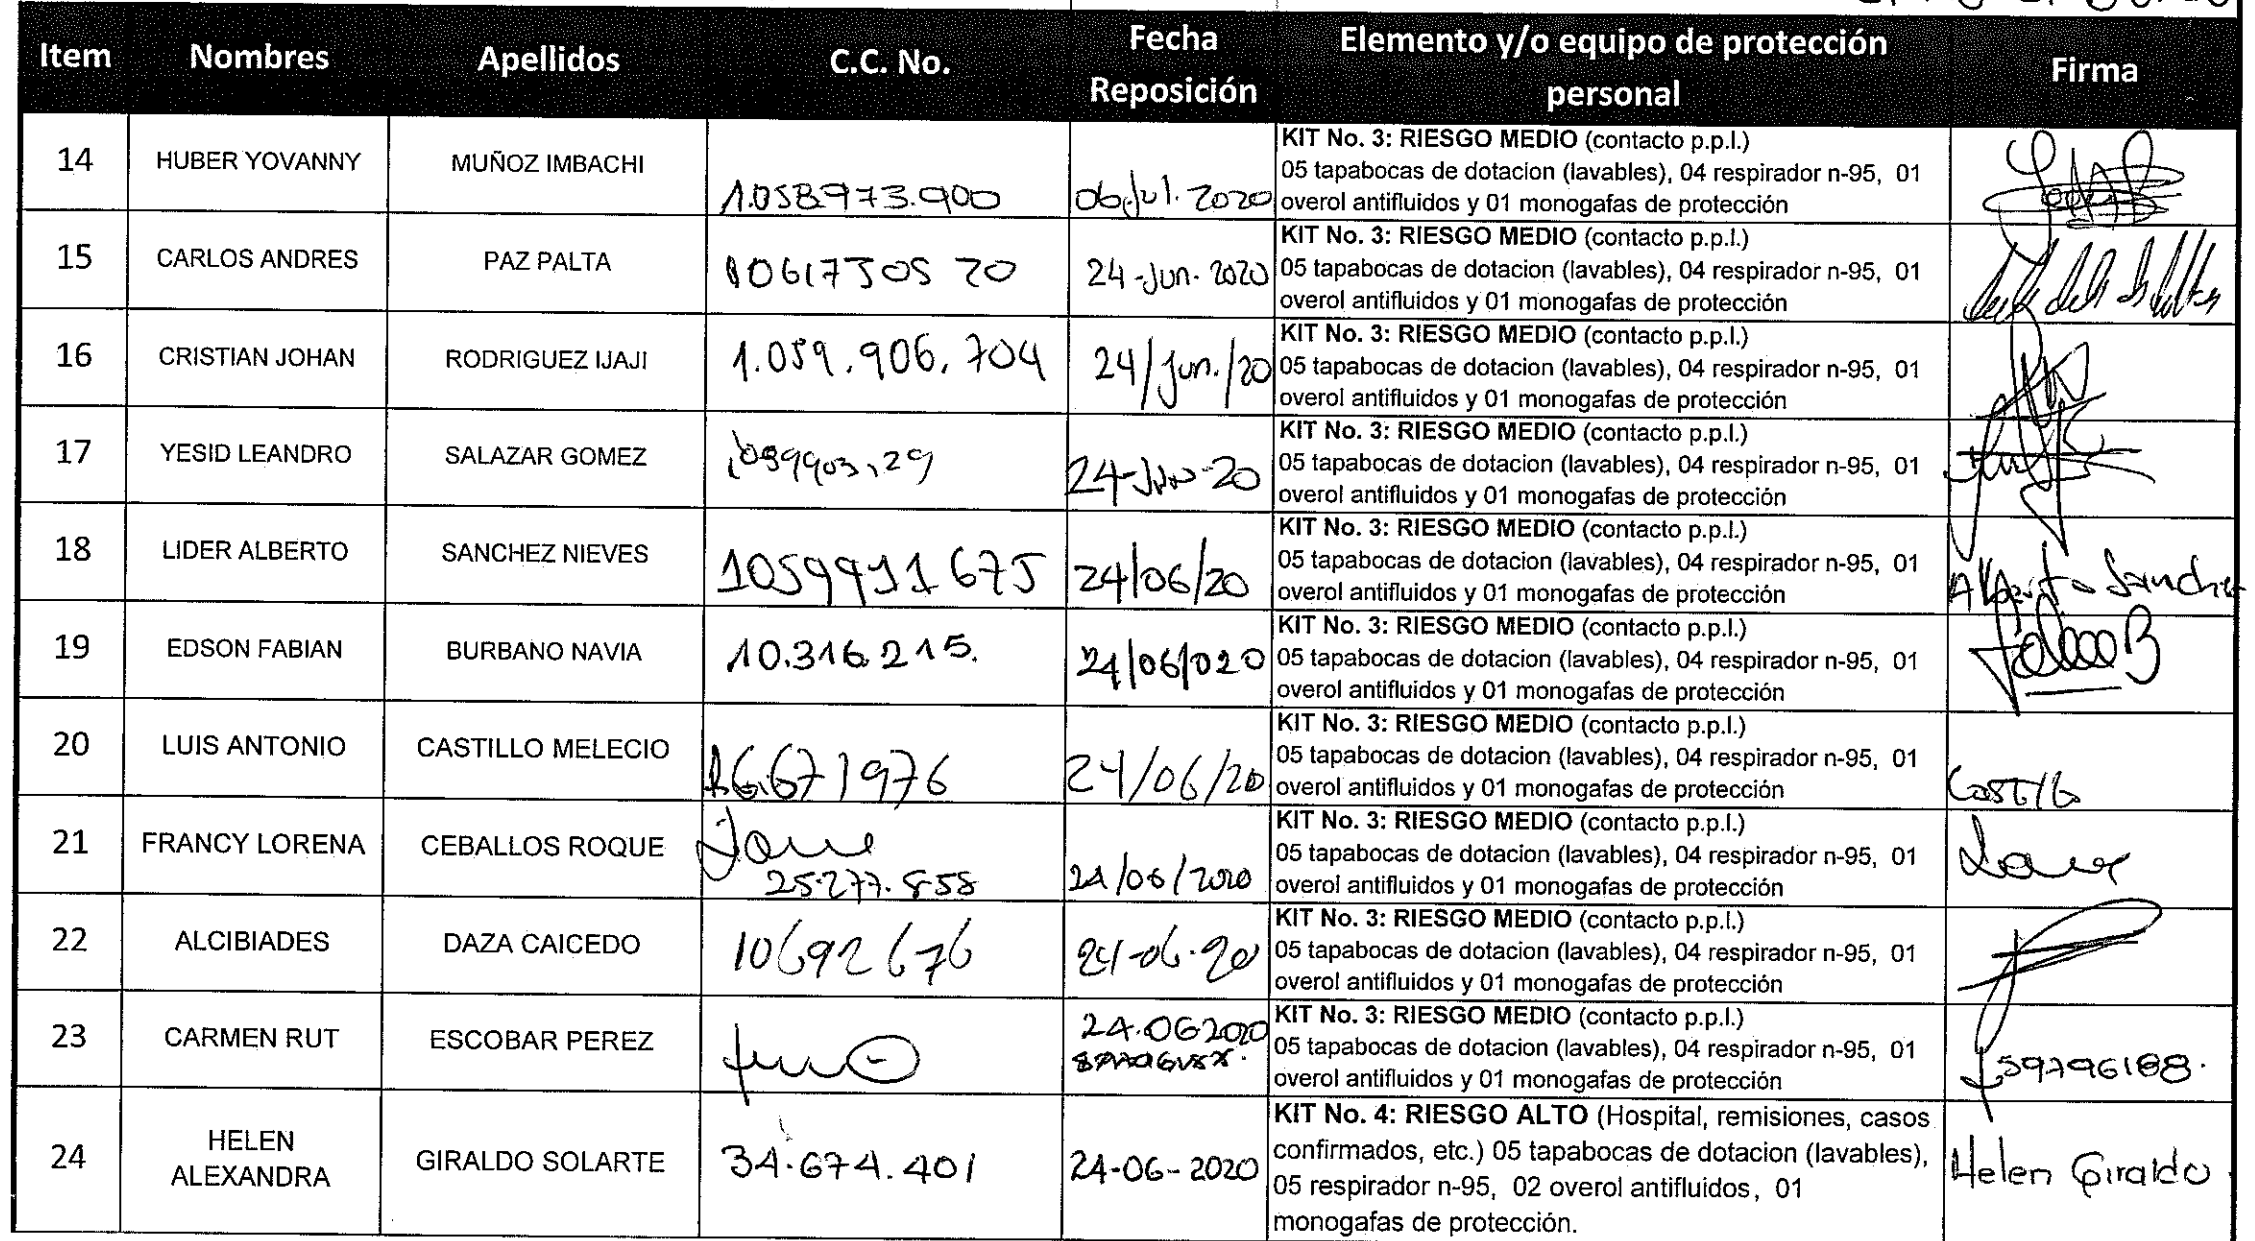 Item Nombres Apellidos C.C. No. Fecha Reposición Elemento y/o equipo de protección personal Firma
14 HUBER YOVANNY MUÑOZ IMBACHI 1.058.973.900 06.Jul.2020 KIT No. 3: RIESGO MEDIO (contacto p.p.l.)
05 tapabocas de dotacion (lavables), 04 respirador n-95, 01
overol antifluidos y 01 monogafas de protección
15 CARLOS ANDRES PAZ PALTA 1061730520 24-Jun.2020 KIT No. 3: RIESGO MEDIO (contacto p.p.l.)
05 tapabocas de dotacion (lavables), 04 respirador n-95, 01
overol antifluidos y 01 monogafas de protección
16 CRISTIAN JOHAN RODRIGUEZ IJAJI 1.059.906.704 24/Jun./20 KIT No. 3: RIESGO MEDIO (contacto p.p.l.)
05 tapabocas de dotacion (lavables), 04 respirador n-95, 01
overol antifluidos y 01 monogafas de protección
17 YESID LEANDRO SALAZAR GOMEZ 24-Jun-20 KIT No. 3: RIESGO MEDIO (contacto p.p.l.)
05 tapabocas de dotacion (lavables), 04 respirador n-95, 01
overol antifluidos y 01 monogafas de protección
18 LIDER ALBERTO SANCHEZ NIEVES 1059911675 24/06/20 KIT No. 3: RIESGO MEDIO (contacto p.p.l.)
05 tapabocas de dotacion (lavables), 04 respirador n-95, 01
overol antifluidos y 01 monogafas de protección
Alberto Sanchez
19 EDSON FABIAN BURBANO NAVIA 10.316.215. 24/06/020 KIT No. 3: RIESGO MEDIO (contacto p.p.l.)
05 tapabocas de dotacion (lavables), 04 respirador n-95, 01
overol antifluidos y 01 monogafas de protección
20 LUIS ANTONIO CASTILLO MELECIO 16.671976 24/06/20 KIT No. 3: RIESGO MEDIO (contacto p.p.l.)
05 tapabocas de dotacion (lavables), 04 respirador n-95, 01
overol antifluidos y 01 monogafas de protección
Castillo
21 FRANCY LORENA CEBALLOS ROQUE 25.277.858 24/06/2020 KIT No. 3: RIESGO MEDIO (contacto p.p.l.)
05 tapabocas de dotacion (lavables), 04 respirador n-95, 01
overol antifluidos y 01 monogafas de protección
22 ALCIBIADES DAZA CAICEDO 10692676 24-06-20 KIT No. 3: RIESGO MEDIO (contacto p.p.l.)
05 tapabocas de dotacion (lavables), 04 respirador n-95, 01
overol antifluidos y 01 monogafas de protección
23 CARMEN RUT ESCOBAR PEREZ 24.06 2020 KIT No. 3: RIESGO MEDIO (contacto p.p.l.)
05 tapabocas de dotacion (lavables), 04 respirador n-95, 01
overol antifluidos y 01 monogafas de protección
59796188.
24 HELEN ALEXANDRA GIRALDO SOLARTE 34.674.401 24-06-2020 KIT No. 4: RIESGO ALTO (Hospital, remisiones, casos
confirmados, etc.) 05 tapabocas de dotacion (lavables),
05 respirador n-95, 02 overol antifluidos, 01
monogafas de protección.
Helen Giraldo